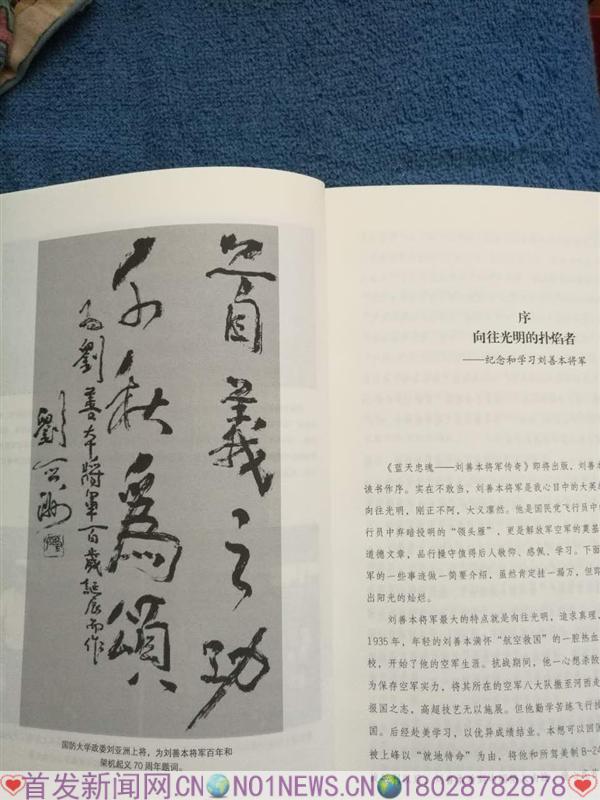 首義之功
千秋爲頌
為劉善本將軍百歲誕辰而作
劉亞洲
国防大学政委刘亚洲上将，为刘善本将军百年和
架机起义70周年题词。
序
向往光明的扑焰者
——纪念和学习刘善本将军
《蓝天忠魂——刘善本将军传奇》即将出版，刘善本
该书作序。实在不敢当，刘善本将军是我心目中的大英
向往光明，刚正不阿，大义凛然。他是国民党飞行员中
行员中弃暗投明的“领头雁”，更是解放军空军的奠基
道德文章，品行操守值得后人敬仰、感佩、学习。下面
军的一些事迹做一简要介绍，虽然肯定挂一漏万，但即
出阳光的灿烂。
刘善本将军最大的特点就是向往光明，追求真理，
1935年，年轻的刘善本满怀“航空救国”的一腔热血
校，开始了他的空军生涯。抗战期间，他一心想杀敌
为保存空军实力，将其所在的空军八大队撤至河西走
报国之志，高超技艺无以施展。但他勤学苦练飞行技
国。后经赴美学习，以优异成绩结业。本想可以回国
被上峰以“就地待命”为由，将他和所驾美制B-24
首发新闻网.CN NO1NEWS.CN 18028782878